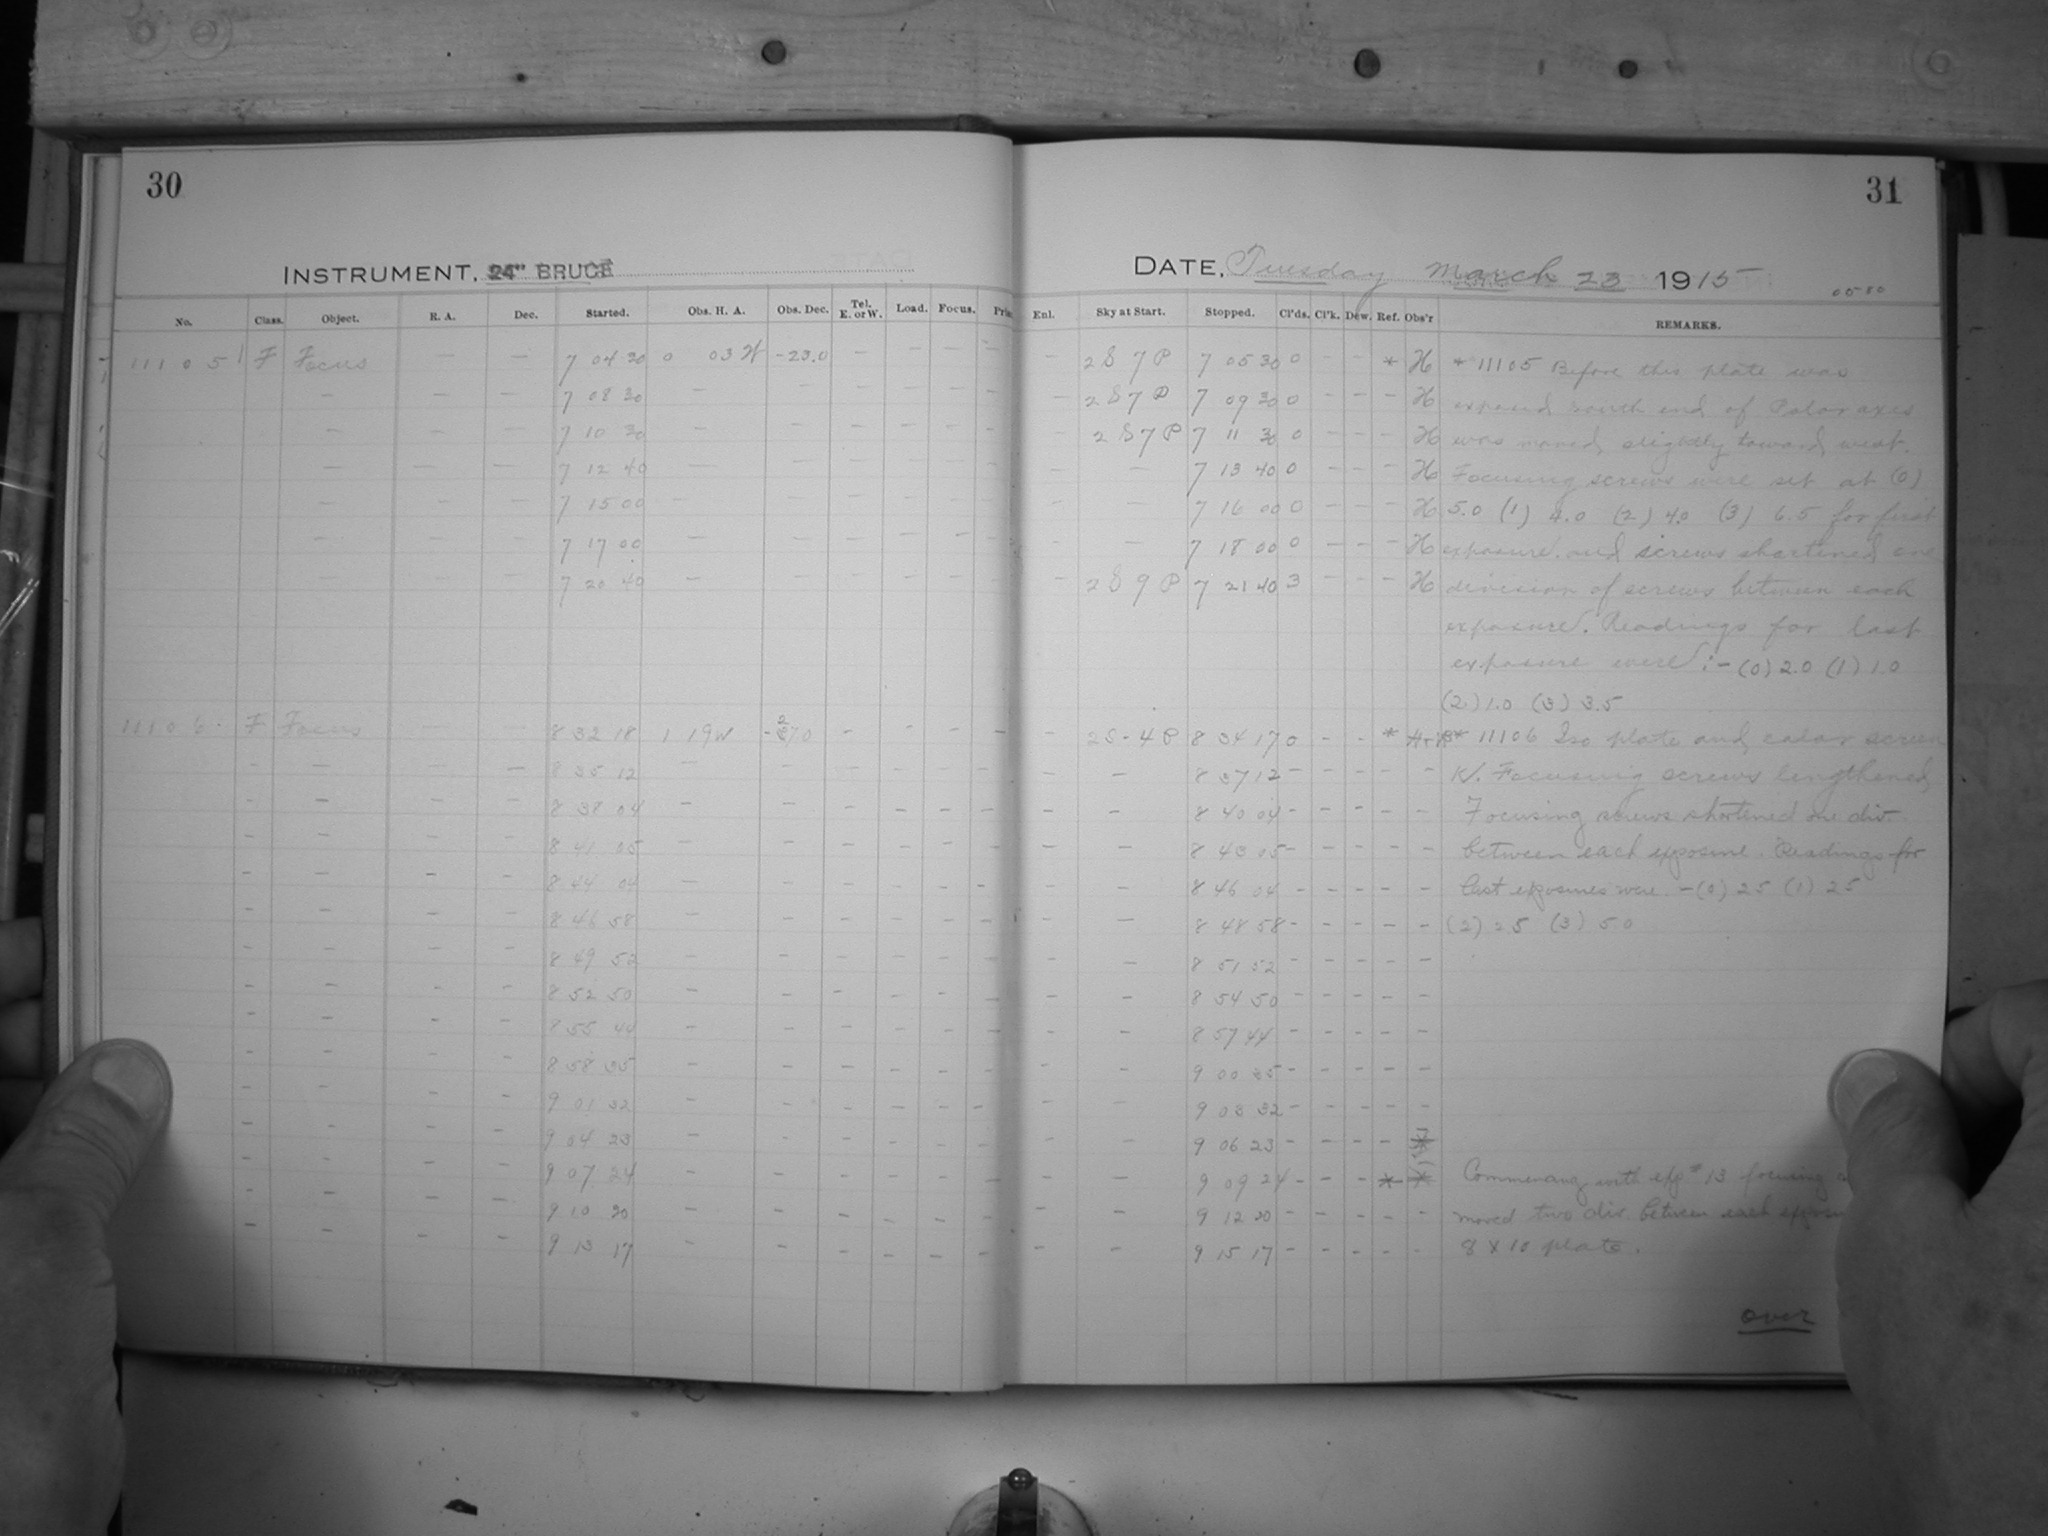 30
INSTRUMENT, 24" BRUCE
No. Class. Object. R. A. Dec. Started. Obs. H. A. Obs. Dec. Tel. E. or W. Load. Focus.
11105 F Focus — — 7 04 30 0 03 W -23.0 — — — —
— — — 7 08 30 — — — — — —
— — — 7 10 30 — — — — — —
— — — 7 12 40 — — — — — —
— — — 7 15 00 — — — — — —
— — — 7 17 00 — — — — — —
— — — 7 20 40 — — — — — —
11106 F Focus — — 8 32 18 1 19 W - 2 70 - - - -
- — — — 8 35 12 — - - - - -
- — - - 8 38 04 - - - - - -
- - - - 8 41 05 - - - - - -
- - - - 8 44 04 - - - - - -
- - - - 8 46 58 - - - - - -
- - - - 8 49 52 - - - - - -
- - - - 8 52 50 - - - - - -
- - - - 8 55 44 - - - - - -
- - - - 8 58 35 - - - - - -
- - - - 9 01 32 - - - - - -
- - - - 9 04 23 - - - - - -
- - - - 9 07 24 - - - - - -
- - - - 9 10 20 - - - - - -
- - - - 9 13 17 - - - - - -
31
DATE, Tuesday March 23 1915
Enl. Sky at Start. Stopped. Cl'ds. Cl'k. Dew. Ref. Obs'r REMARKS.
- 2S 7P 7 05 30 0 - - * H * 11105 Before this plate was
- 2S 7P 7 09 30 0 - - - H exposed south end of Polar axis
- 2S 7P 7 11 30 0 - - - H was moved slightly toward west.
- - 7 13 40 0 - - - H Focusing screws were set at (0)
- - 7 16 00 0 - - - H 5.0 (1) 4.0 (2) 4.0 (3) 6.5 for first
- - 7 18 00 0 - - - H exposure and screws shortened one
- 2S 9P 7 21 40 3 - - - H division of screws between each
exposure. Readings for last
exposure were :- (0) 2.0 (1) 1.0
(2) 1.0 (3) 3.5
- 2S-4P 8 34 17 0 - - * * 11106 Iso plate and color screen
- - 8 37 12 - - - - - Focusing screws lengthened
- - 8 40 04 - - - - - Focusing screws shortened one div
- - 8 43 05 - - - - - between each exposure. Readings for
- - 8 46 04 - - - - - last exposures were - (0) 25 (1) 25
- - 8 48 58 - - - - - (2) 25 (3) 50
- - 8 51 52 - - - - -
- - 8 54 50 - - - - -
- - 8 57 44 - - - - -
- - 9 00 35 - - - - -
- - 9 03 32 - - - - -
- - 9 06 23 - - - - *
- - 9 09 24 - - - * * Commencing with exp # 13 focusing
- - 9 12 20 - - - - - moved two div. between each
- - 9 15 17 - - - - - 8 x 10 plate.
over